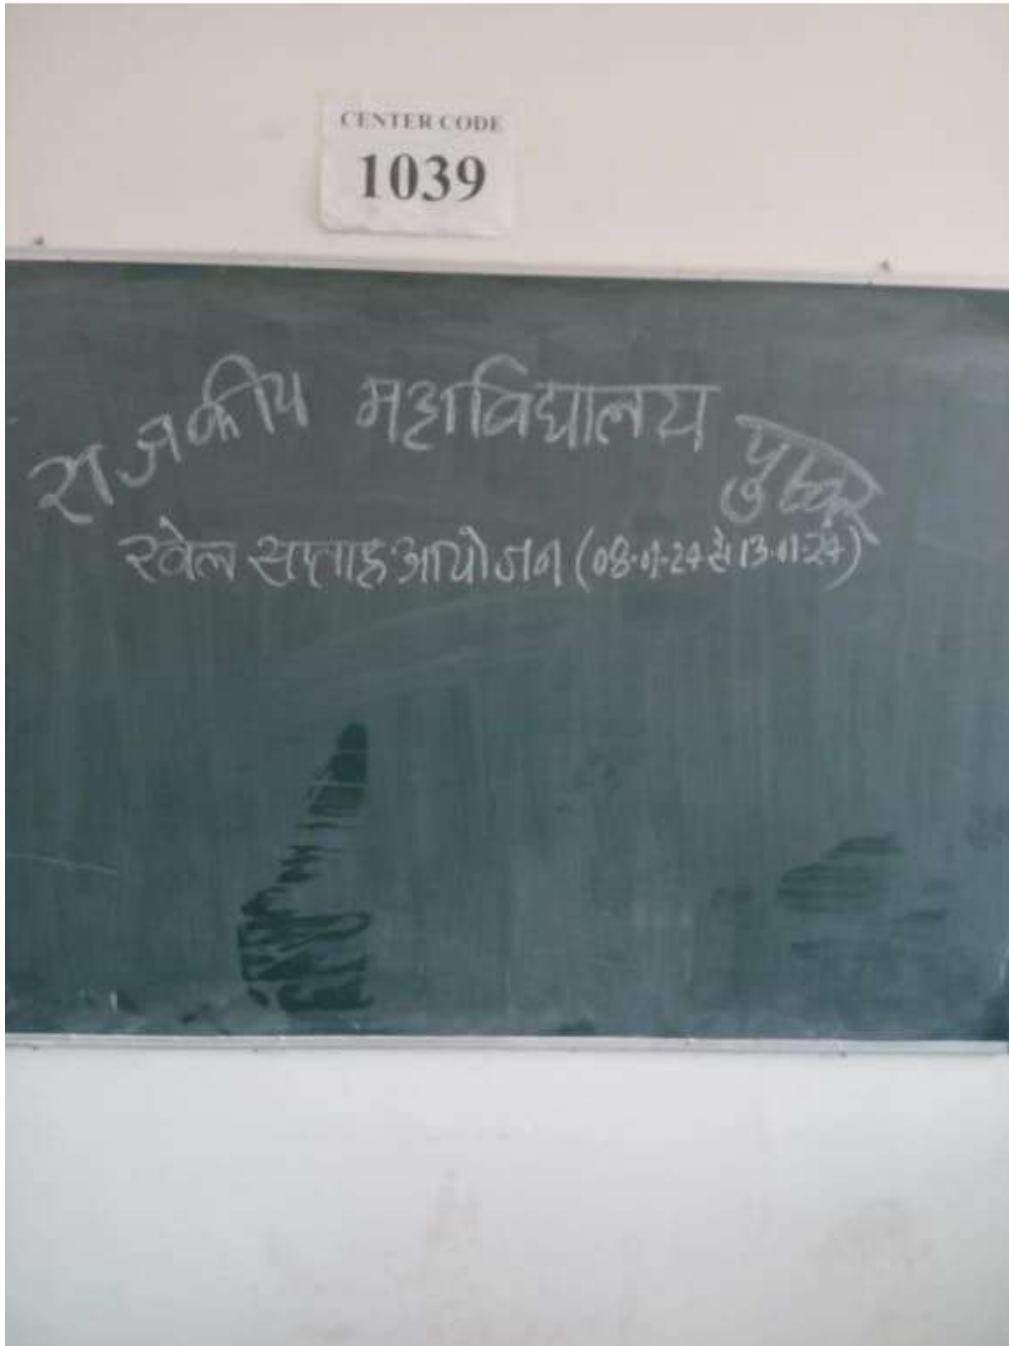 CENTER CODE
1039
राजकीय महाविद्यालय पुष्कर
खेल सप्ताह आयोजन (08-01-24 से 13-01-24)